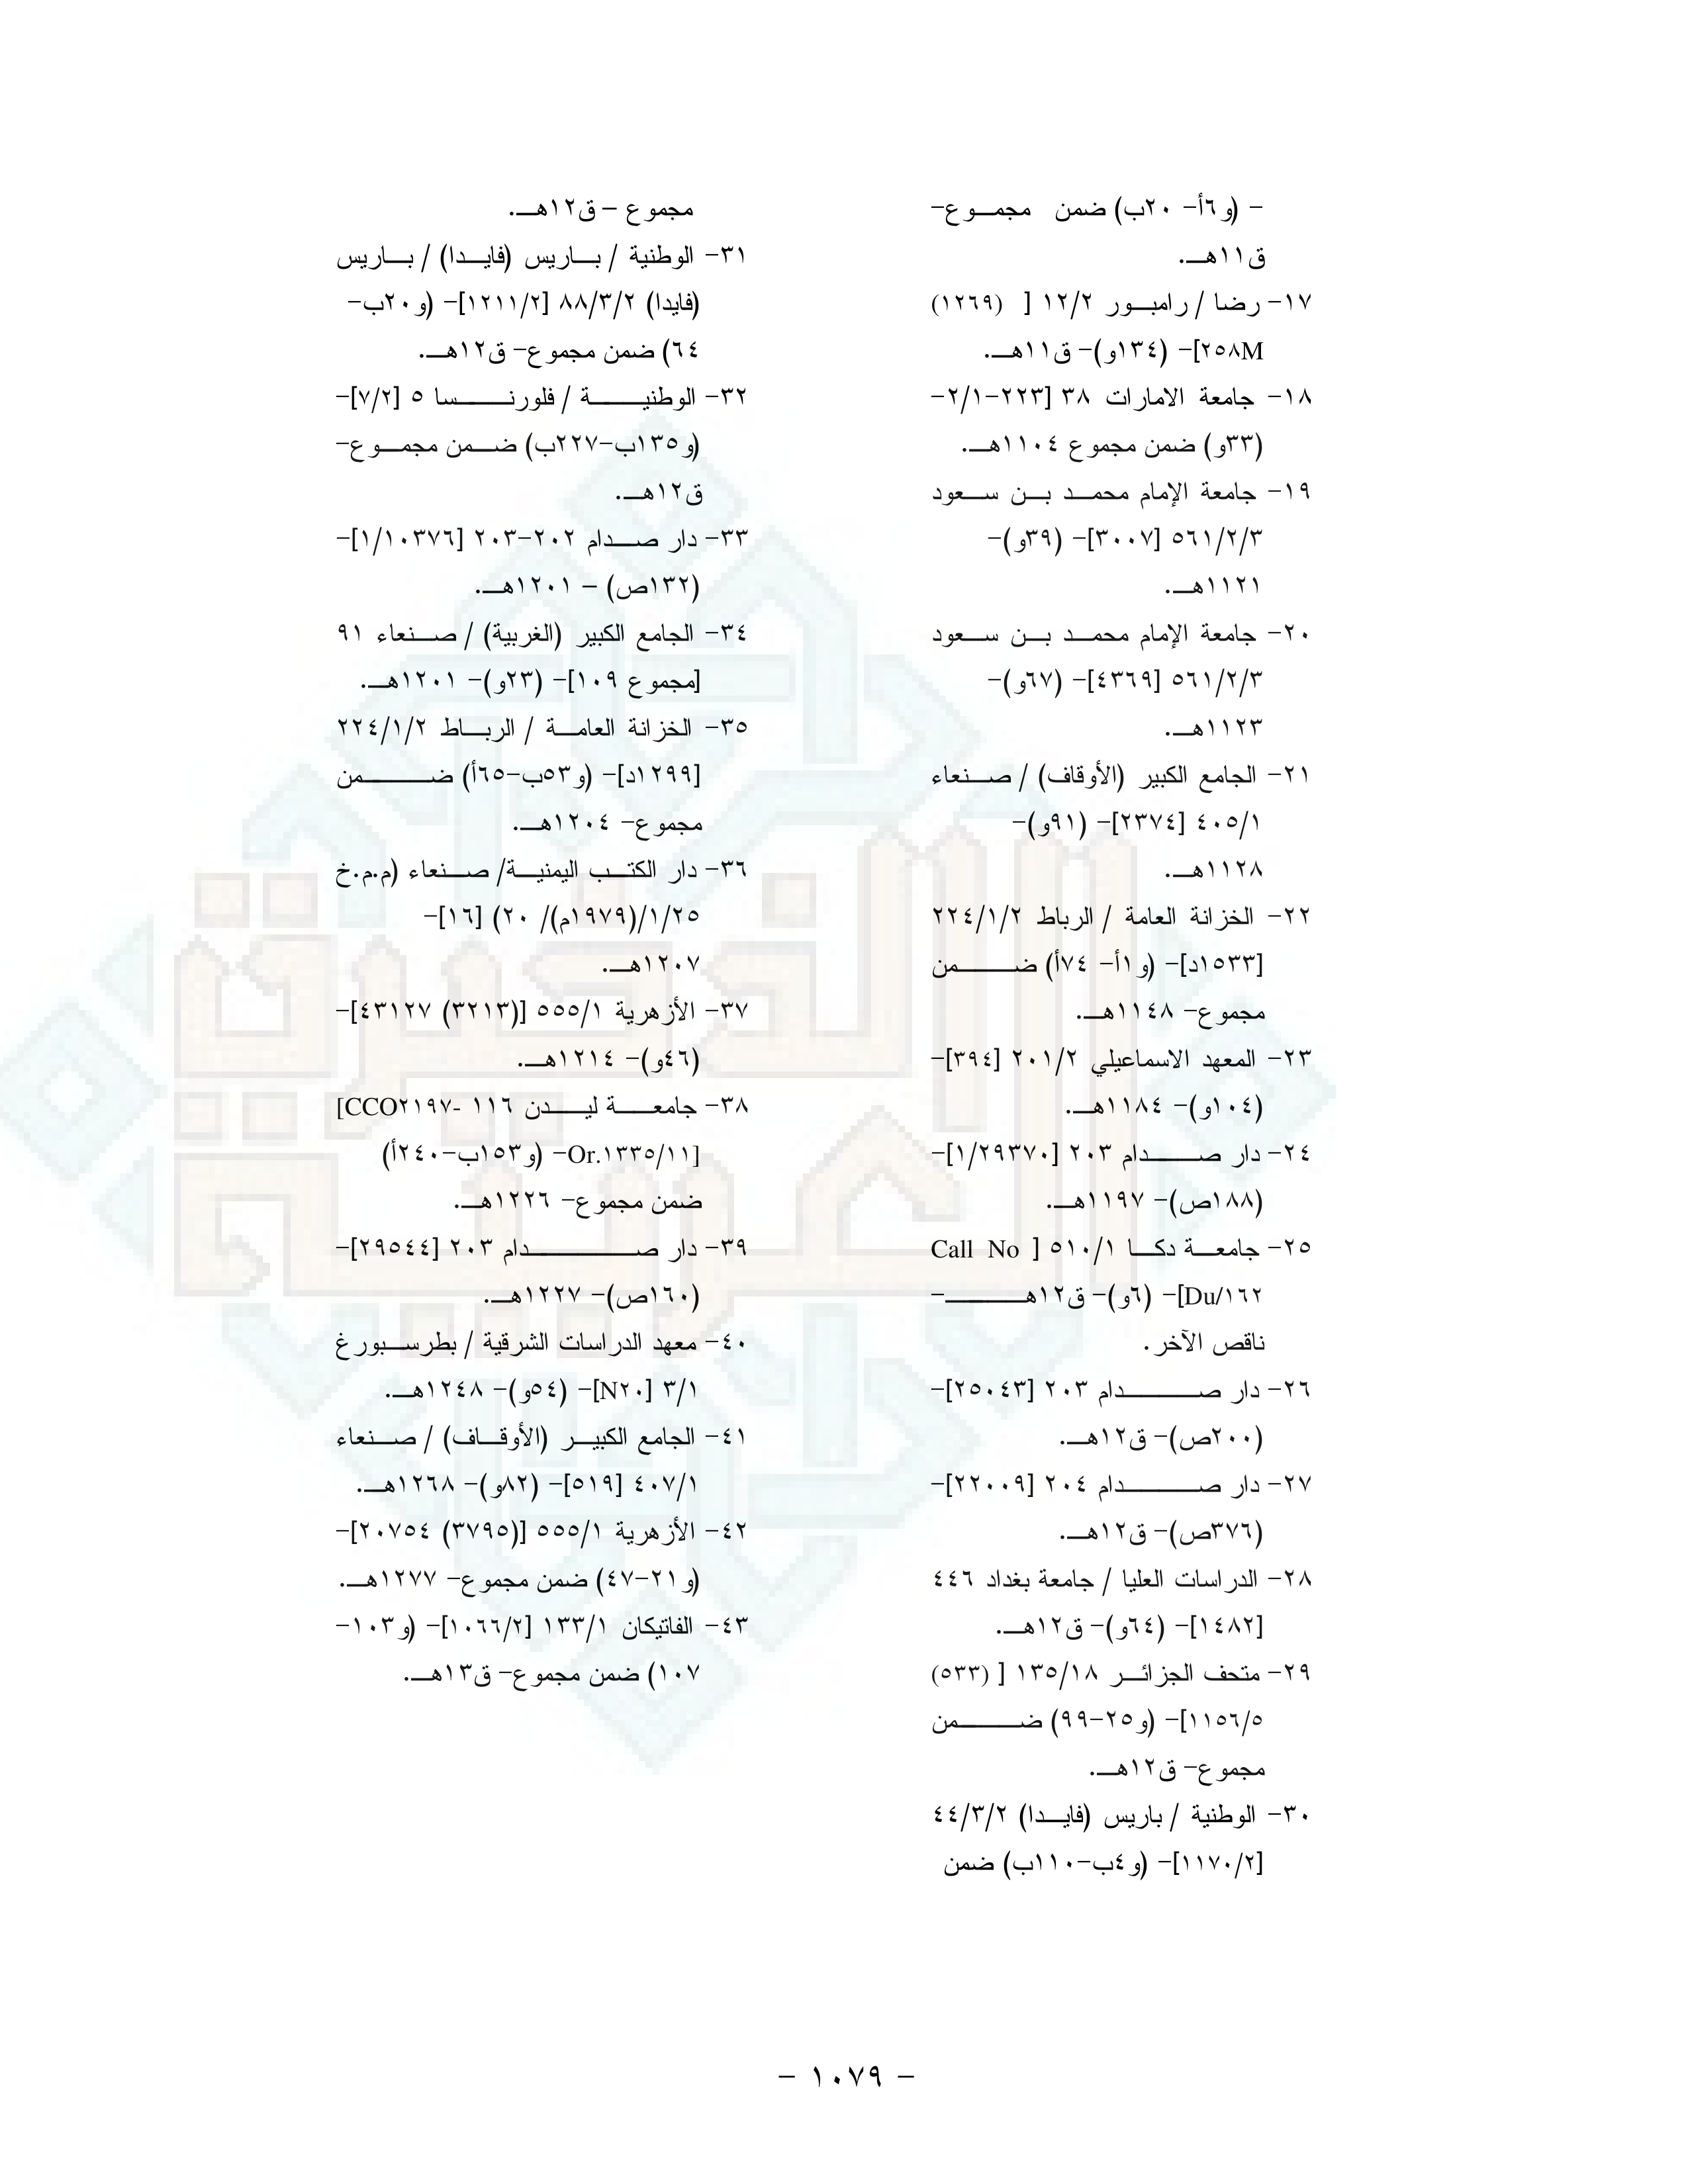 - (و٦أ- ٢٠ب) ضمن مجموع-
ق١١هـ.
١٧- رضا / رامبور ١٢/٢ [ (١٢٦٩)
٢٥٨M]- (١٣٤و)- ق١١هـ.
١٨- جامعة الامارات ٣٨ [٢٢٣-٢/١-
(٣٣و) ضمن مجموع ١١٠٤هـ.
١٩- جامعة الإمام محمد بن سعود
٥٦١/٢/٣ [٣٠٠٧]- (٣٩و)-
١١٢١هـ.
٢٠- جامعة الإمام محمد بن سعود
٥٦١/٢/٣ [٤٣٦٩]- (٦٧و)-
١١٢٣هـ.
٢١- الجامع الكبير (الأوقاف) / صنعاء
٤٠٥/١ [٢٣٧٤]- (٩١و)-
١١٢٨هـ.
٢٢- الخزانة العامة / الرباط ٢٢٤/١/٢
[١٥٣٣د]- (و١أ- ٧٤أ) ضمن
مجموع- ١١٤٨هـ.
٢٣- المعهد الاسماعيلي ٢٠١/٢ [٣٩٤]-
(١٠٤و)- ١١٨٤هـ.
٢٤- دار صدام ٢٠٣ [١/٢٩٣٧٠]-
(١٨٨ص)- ١١٩٧هـ.
٢٥- جامعة دكا ٥١٠/١ [ Call No
Du/١٦٢]- (٦و)- ق١٢هـ-
ناقص الآخر.
٢٦- دار صدام ٢٠٣ [٢٥٠٤٣]-
(٢٠٠ص)- ق١٢هـ.
٢٧- دار صدام ٢٠٤ [٢٢٠٠٩]-
(٣٧٦ص)- ق١٢هـ.
٢٨- الدراسات العليا / جامعة بغداد ٤٤٦
[١٤٨٢]- (٦٤و)- ق١٢هـ.
٢٩- متحف الجزائر ١٣٥/١٨ [ (٥٣٣)
١١٥٦/٥]- (و٢٥-٩٩) ضمن
مجموع- ق١٢هـ.
٣٠- الوطنية / باريس (فايدا) ٤٤/٣/٢
[١١٧٠/٢]- (و٤ب-١١٠ب) ضمن
مجموع – ق١٢هـ.
٣١- الوطنية / باريس (فايدا) / باريس
(فايدا) ٨٨/٣/٢ [١٢١١/٢]- (و٢٠ب-
٦٤) ضمن مجموع- ق١٢هـ.
٣٢- الوطنية / فلورنسا ٥ [٧/٢]-
(و١٣٥ب-٢٢٧ب) ضمن مجموع-
ق١٢هـ.
٣٣- دار صدام ٢٠٢-٢٠٣ [١/١٠٣٧٦]-
(١٣٢ص) – ١٢٠١هـ.
٣٤- الجامع الكبير (الغربية) / صنعاء ٩١
[مجموع ١٠٩]- (٢٣و)- ١٢٠١هـ.
٣٥- الخزانة العامة / الرباط ٢٢٤/١/٢
[١٢٩٩د]- (و٥٣ب-٦٥أ) ضمن
مجموع- ١٢٠٤هـ.
٣٦- دار الكتب اليمنية/ صنعاء (م.م.خ
١/٢٥/(١٩٧٩م)/ ٢٠) [١٦]-
١٢٠٧هـ.
٣٧- الأزهرية ٥٥٥/١ [(٣٢١٣) ٤٣١٢٧]-
(٤٦و)- ١٢١٤هـ.
٣٨- جامعة ليدن ١١٦ -CCO٢١٩٧]
[Or.١٣٣٥/١١- (و١٥٣ب-٢٤٠أ)
ضمن مجموع- ١٢٢٦هـ.
٣٩- دار صدام ٢٠٣ [٢٩٥٤٤]-
(١٦٠ص)- ١٢٢٧هـ.
٤٠- معهد الدراسات الشرقية / بطرسبورغ
٣/١ [N٢٠]- (٥٤و)- ١٢٤٨هـ.
٤١- الجامع الكبير (الأوقاف) / صنعاء
٤٠٧/١ [٥١٩]- (٨٢و)- ١٢٦٨هـ.
٤٢- الأزهرية ٥٥٥/١ [(٣٧٩٥) ٢٠٧٥٤]-
(و٢١-٤٧) ضمن مجموع- ١٢٧٧هـ.
٤٣- الفاتيكان ١٣٣/١ [١٠٦٦/٢]- (و١٠٣-
١٠٧) ضمن مجموع- ق١٣هـ.
- ١٠٧٩ -